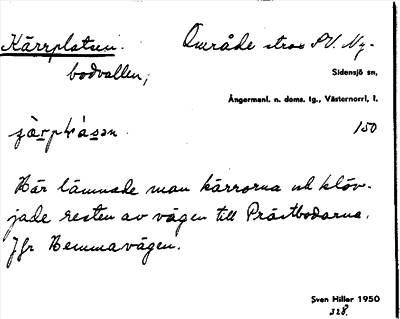 Kärrplatsen. Område strax SV. Ny-
bodvallen,
Sidensjö sn,
Ångermanl. n. doms. tg., Västernorrl. l.
150
Här lämnade man kärrorna och klöv-
jade resten av vägen till Prästbodarna.
Jfr Hemmavägen.
Sven Hiller 1950
328.